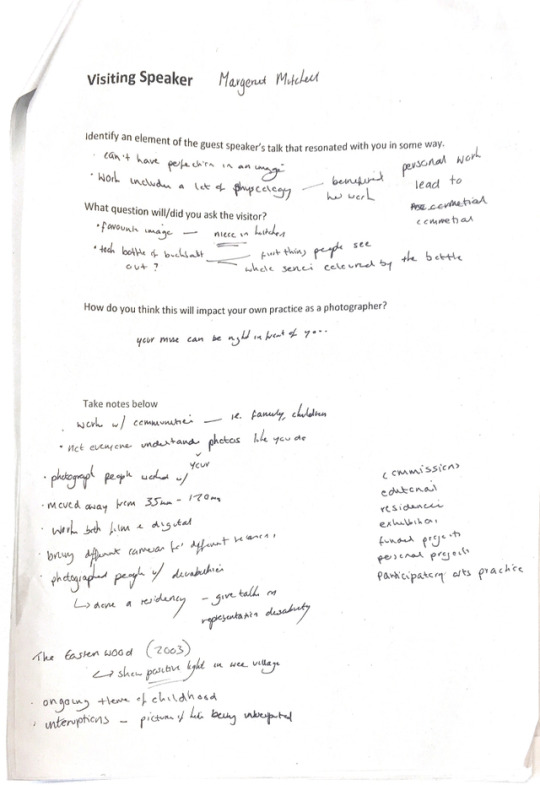 Visiting Speaker Margeret Mitchell
Identify an element of the guest speaker's talk that resonated with you in some way.
· can't have perfection in an image
· Work includes a lot of — benefitted her work
personal work
lead to
cometial
What question will/did you ask the visitor?
· favourite image — niece in kitchen
· tech bottle of buckfast — first thing people see
out? whole coloured by the bottle
How do you think this will impact your own practice as a photographer?
your muse can be right in front of you...
Take notes below
· work w/ communities — ie. family, children
· not everyone understands photos like you do
· photograph people worked w/
your
· moved away from 35mm - 120mm
· work both film & digital
· bring different cameras for different
· photographed people w/ disabilities
↳ done a residency — give talk on
representation disability
commissions
editorial
residencies
exhibitions
funded projects
personal projects
participatory arts practice
The Eastern wood (2003)
↳ show positive light in wee village
· ongoing theme of childhood
· interuptions — picture of life being interrupted